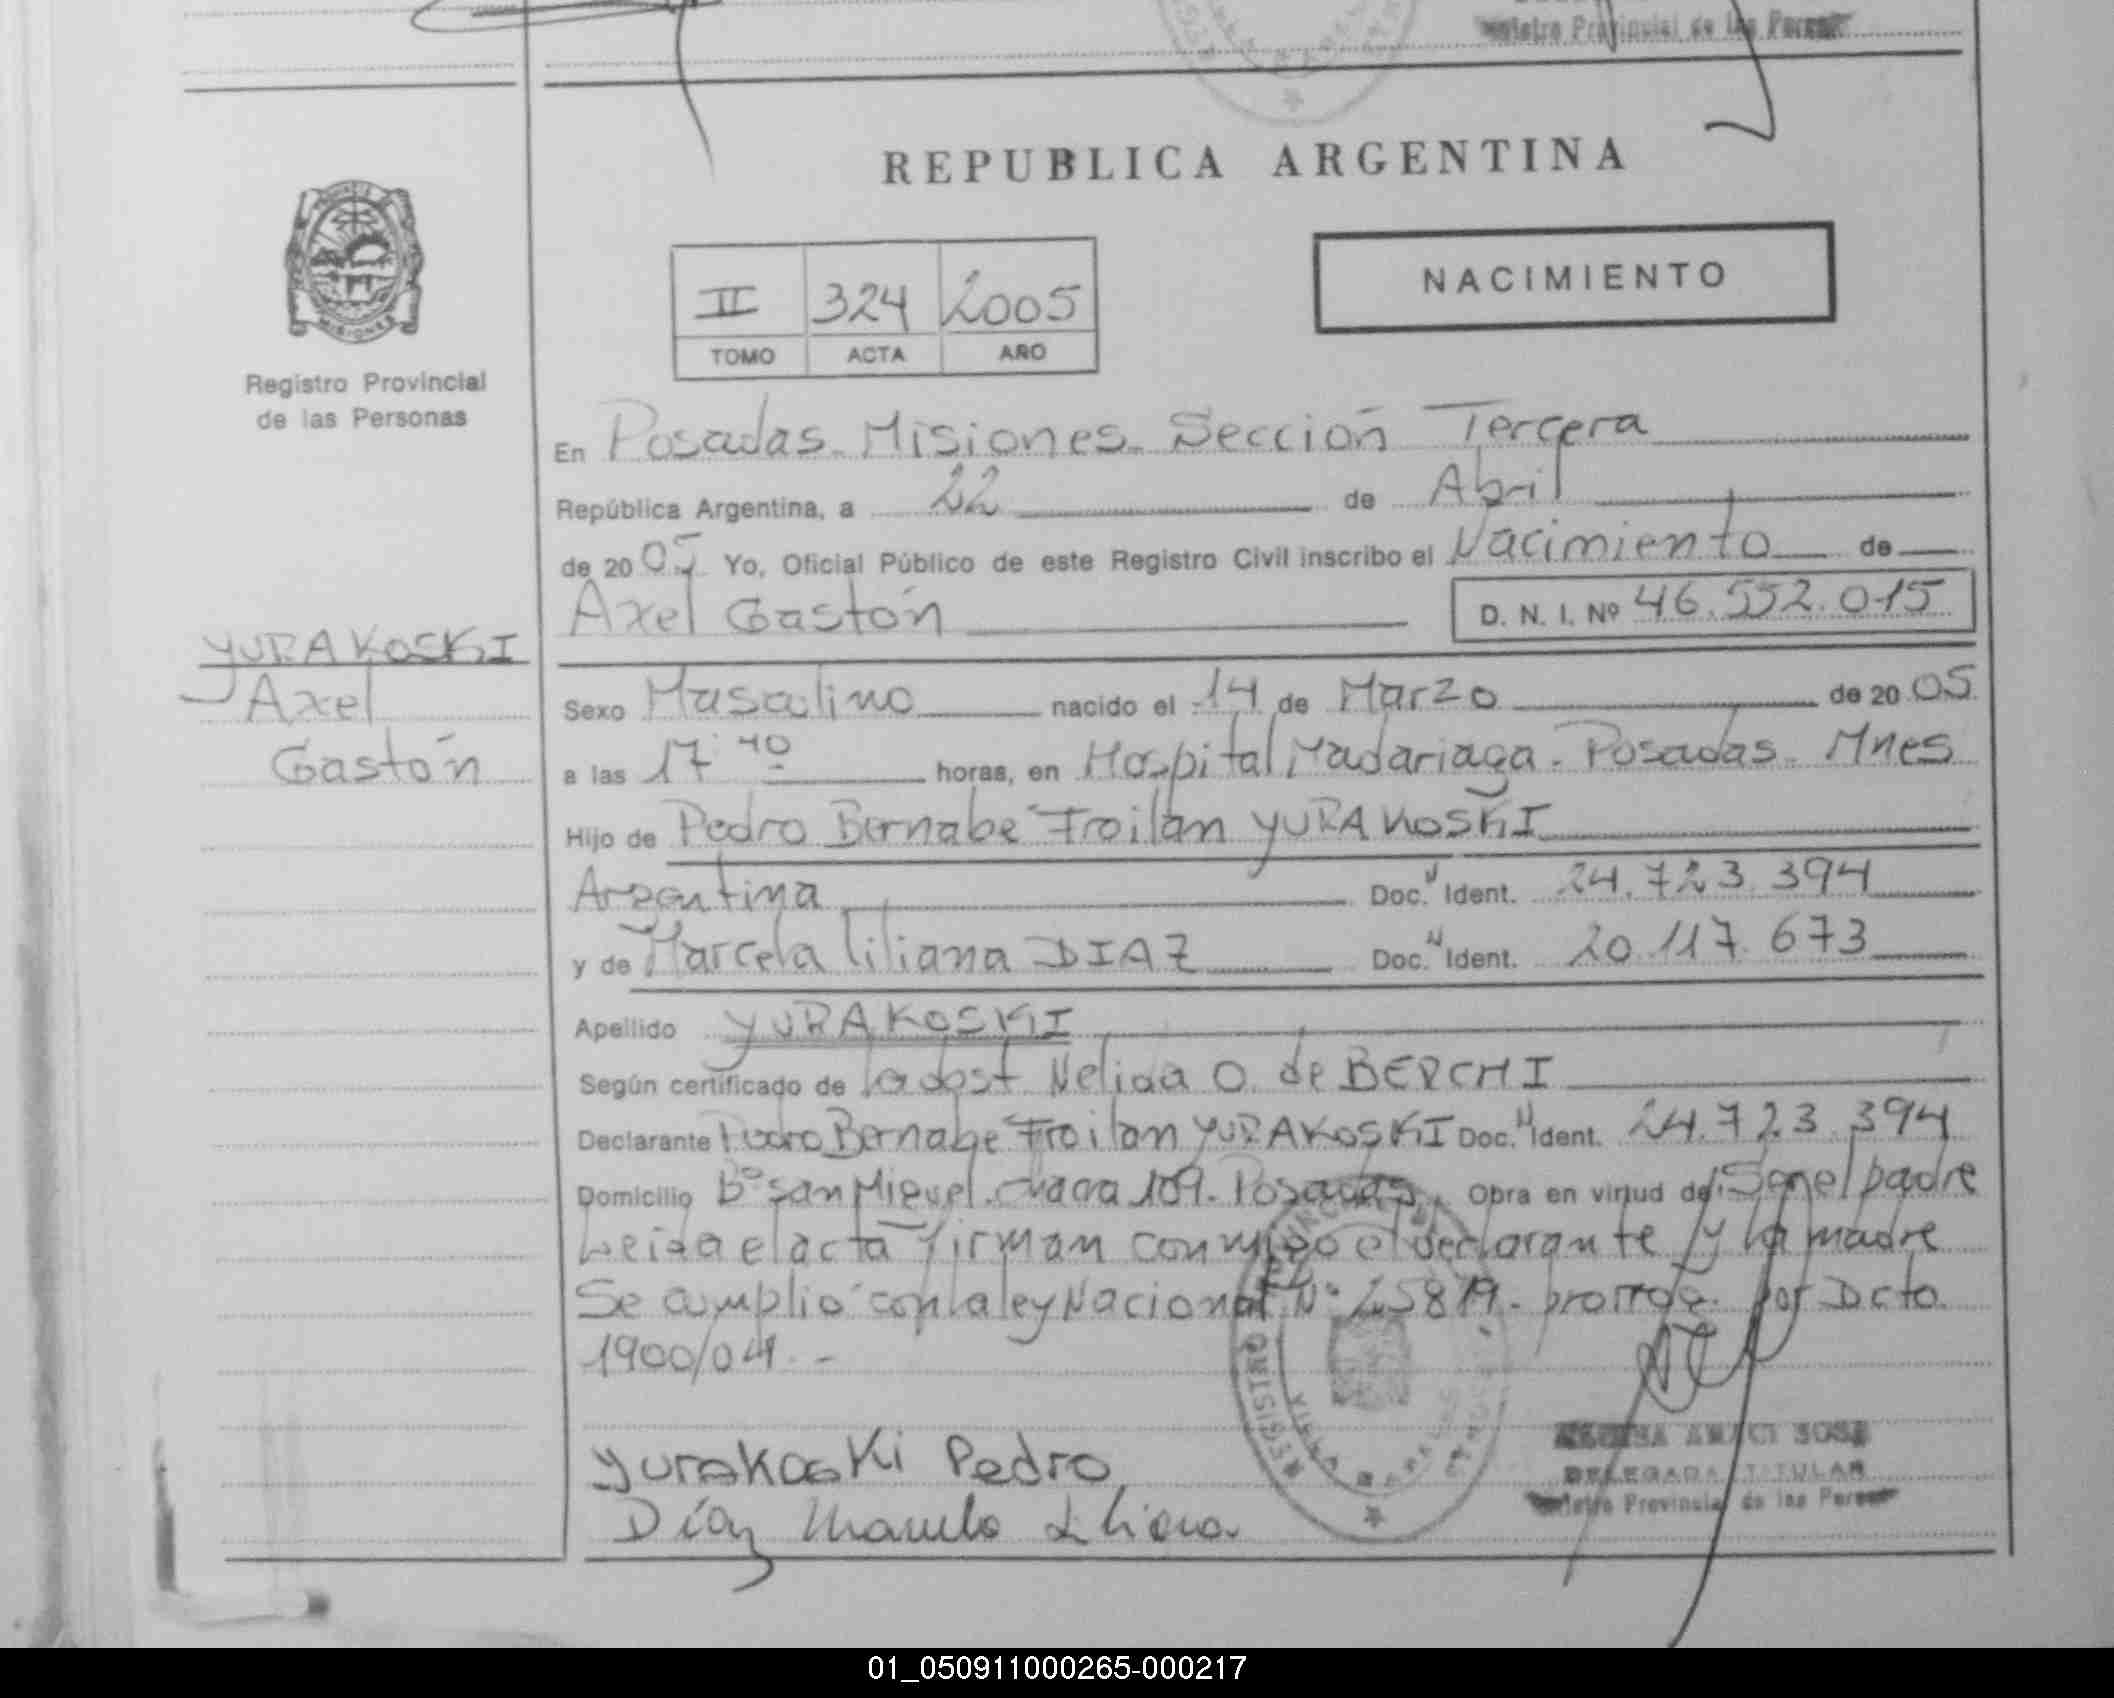 REPUBLICA ARGENTINA
NACIMIENTO
II 324 2005
TOMO ACTA AÑO
MISIONES
Registro Provincial
de las Personas
En Posadas - Misiones - Sección Tercera
República Argentina, a 22 de Abril
de 2005 Yo, Oficial Público de este Registro Civil inscribo el Nacimiento de
Axel Gastón D. N. I. Nº 46.552.015
YURAKOSKI
Axel
Gastón
Sexo Masculino nacido el 14 de Marzo de 2005
a las 17 40 horas, en Hospital Madariaga - Posadas - Mnes
Hijo de Pedro Bernabe Froilan YURAKOSKI
Argentina Doc. N Ident. 24.723.394
y de Marcela Liliana DIAZ Doc. N Ident. 20.117.673
Apellido YURAKOSKI
Según certificado de la obst Nelida O. de BERCHI
Declarante Pedro Bernabe Froilan YURAKOSKI Doc. N Ident. 24.723.394
Domicilio Bº San Miguel - chacra 109 - Posadas Obra en virtud de: Ser el padre
Leida el acta firman conmigo el declarante y la madre
Se cumplio con la ley Nacional Nº 25819 - prorrog. por Dcto.
1900/04 -
Yurakoski Pedro
Díaz Marcela Liliana
DELEGADA TITULAR
Provincial de las
01_050911000265-000217